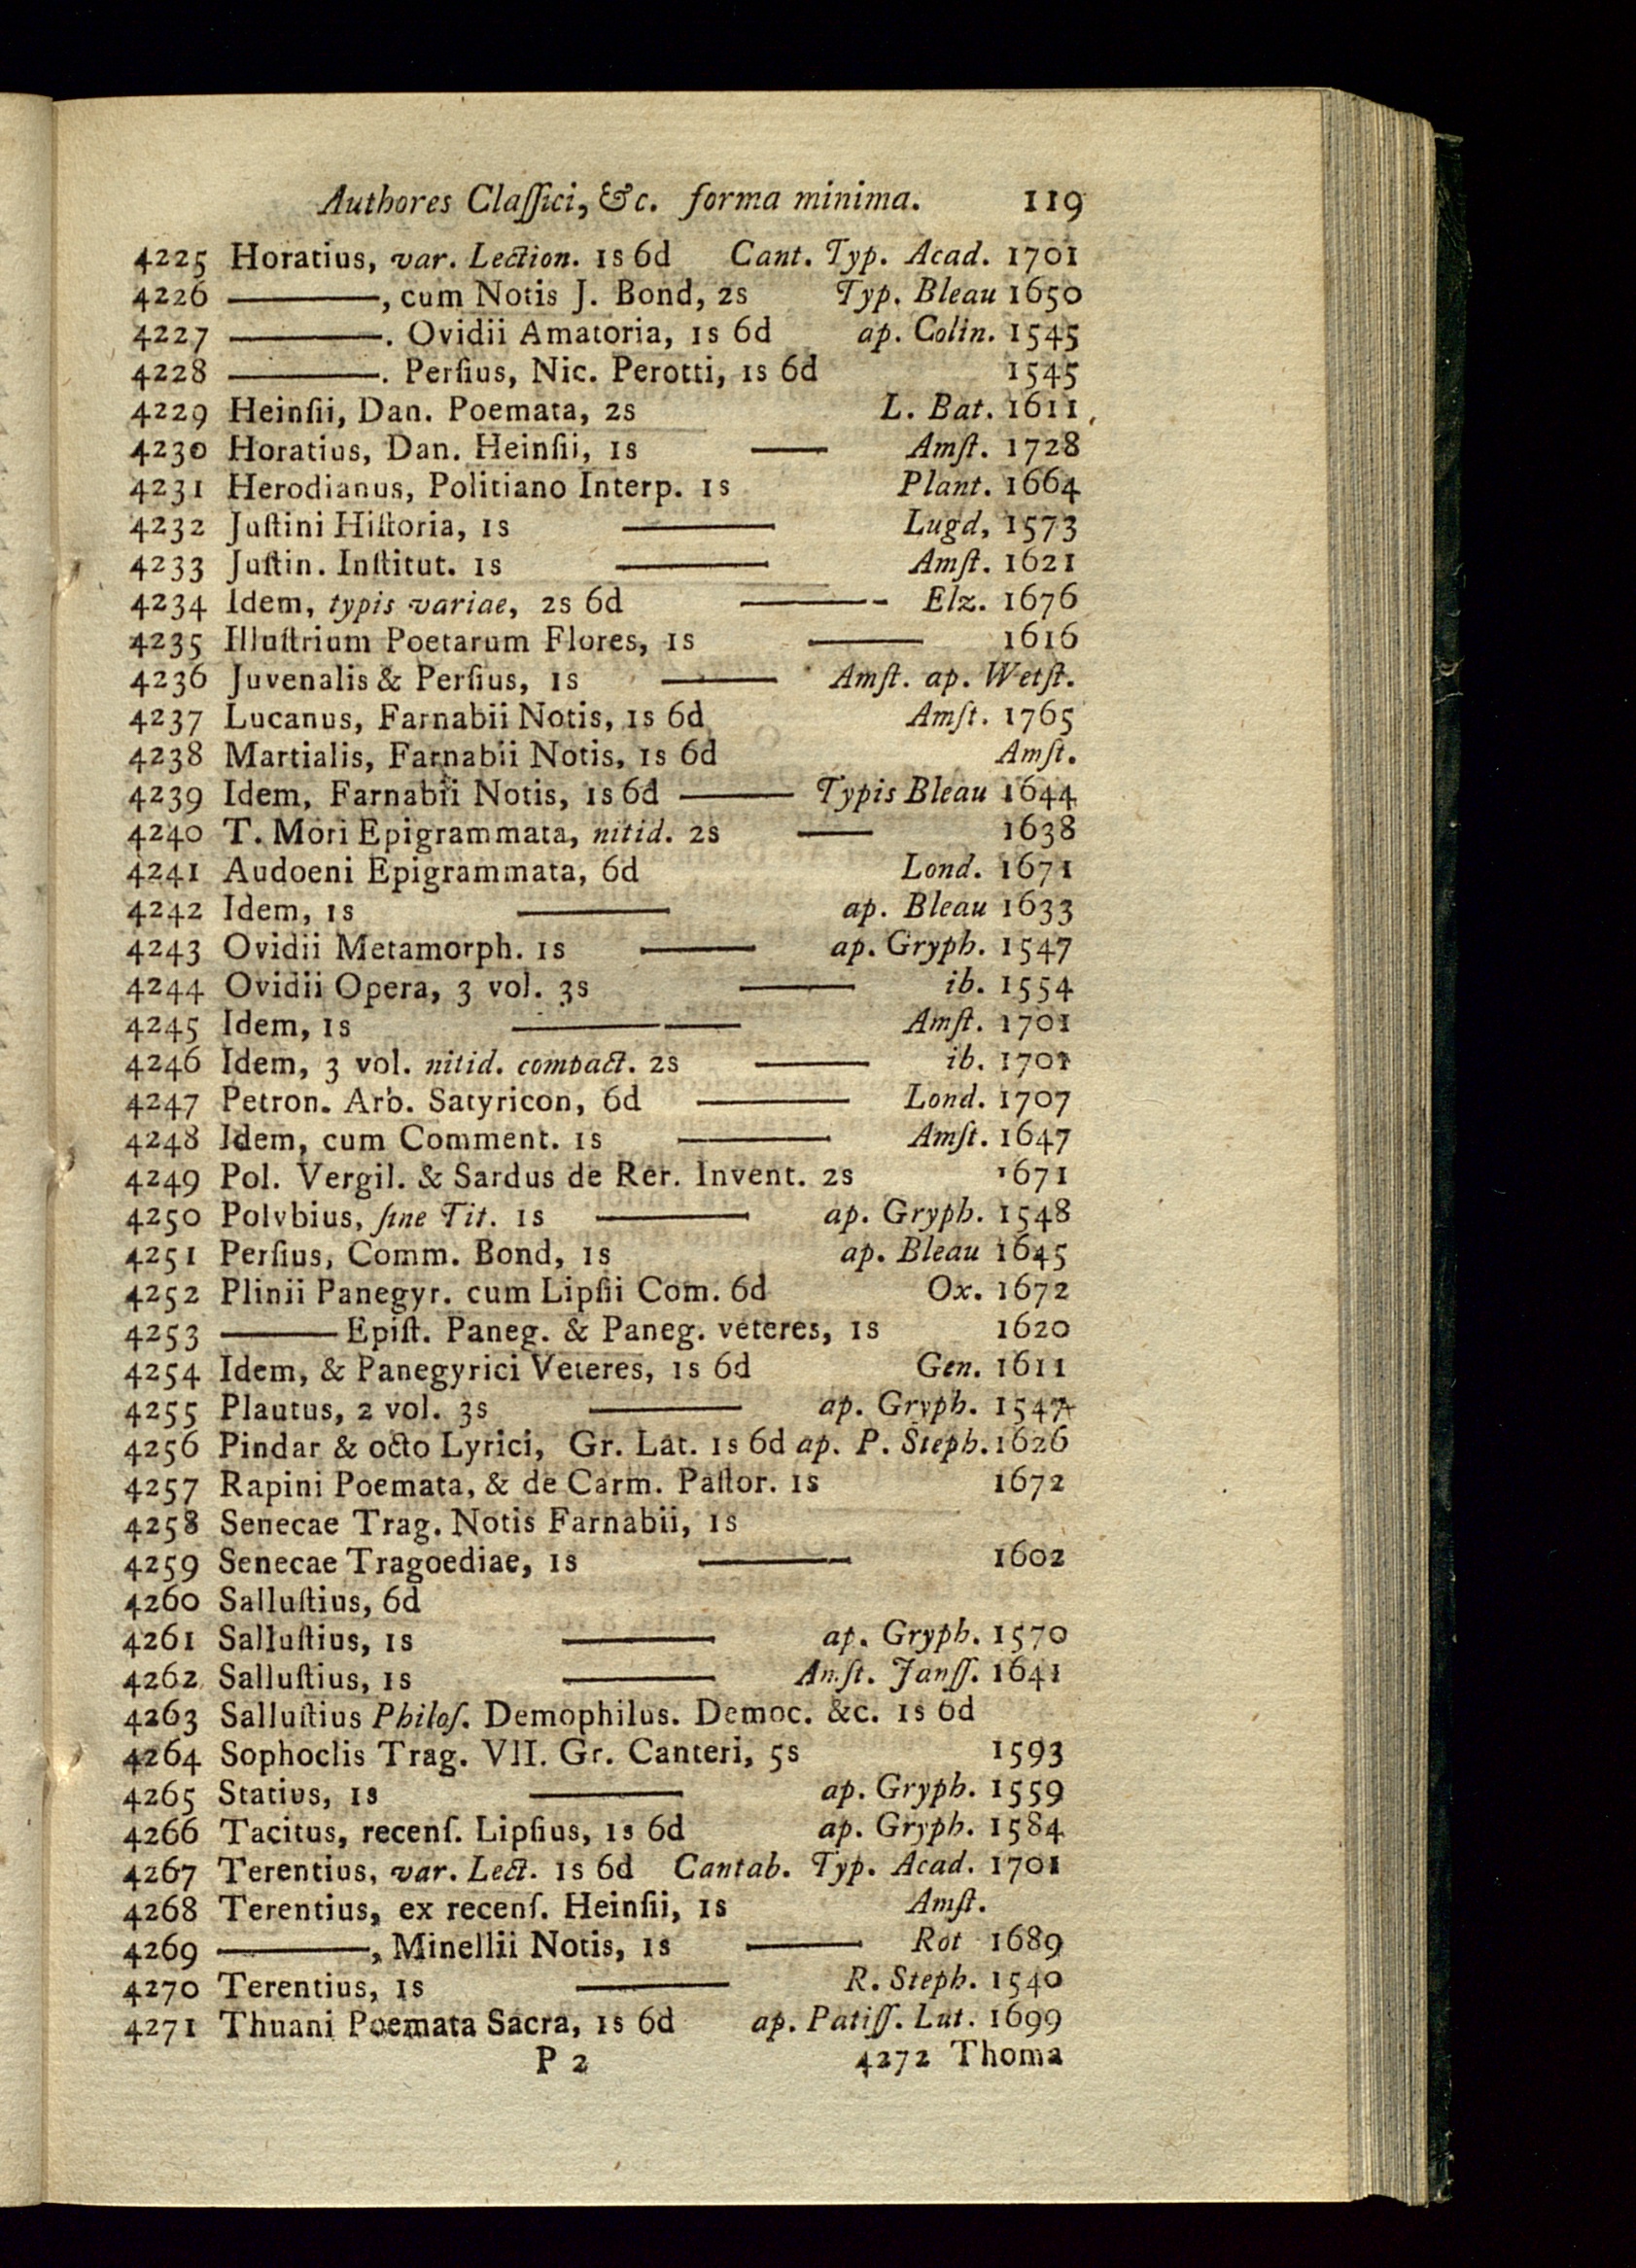 Authores Claſſici, &c. forma minima. 119
4225 Horatius, var. Lection. 1s 6d Cant. Typ. Acad. 1701
4226 ———, cum Notis J. Bond, 2s Typ. Bleau 1650
4227 ———. Ovidii Amatoria, 1s 6d ap. Colin. 1545
4228 ———. Perſius, Nic. Perotti, 1s 6d 1545
4229 Heinſii, Dan. Poemata, 2s L. Bat. 1611
4230 Horatius, Dan. Heinſii, 1s —— Amſt. 1728
4231 Herodianus, Politiano Interp. 1s Plant. 1664
4232 Juſtini Hiſtoria, 1s ——— Lugd, 1573
4233 Juſtin. Inſtitut. 1s ——— Amſt. 1621
4234 Idem, typis variae, 2s 6d ———- Elz. 1676
4235 Illuſtrium Poetarum Flores, 1s ——— 1616
4236 Juvenalis & Perſius, 1s ——— Amſt. ap. Wetſt.
4237 Lucanus, Farnabii Notis, 1s 6d Amſt. 1765
4238 Martialis, Farnabii Notis, 1s 6d Amſt.
4239 Idem, Farnabii Notis, 1s 6d ——— Typis Bleau 1644
4240 T. Mori Epigrammata, nitid. 2s —— 1638
4241 Audoeni Epigrammata, 6d Lond. 1671
4242 Idem, 1s ——— ap. Bleau 1633
4243 Ovidii Metamorph. 1s ——— ap. Gryph. 1547
4244 Ovidii Opera, 3 vol. 3s ——— ib. 1554
4245 Idem, 1s ————— Amſt. 1701
4246 Idem, 3 vol. nitid. compact. 2s ——— ib. 1701
4247 Petron. Arb. Satyricon, 6d ——— Lond. 1707
4248 Idem, cum Comment. 1s ——— Amſt. 1647
4249 Pol. Vergil. & Sardus de Rer. Invent. 2s 1671
4250 Polybius, ſine Tit. 1s ——— ap. Gryph. 1548
4251 Perſius, Comm. Bond, 1s ap. Bleau 1645
4252 Plinii Panegyr. cum Lipſii Com. 6d Ox. 1672
4253 ——— Epiſt. Paneg. & Paneg. veteres, 1s 1620
4254 Idem, & Panegyrici Veteres, 1s 6d Gen. 1611
4255 Plautus, 2 vol. 3s ——— ap. Gryph. 1547
4256 Pindar & octo Lyrici, Gr. Lat. 1s 6d ap. P. Steph. 1626
4257 Rapini Poemata, & de Carm. Paſtor. 1s 1672
4258 Senecae Trag. Notis Farnabii, 1s
4259 Senecae Tragoediae, 1s ——— 1602
4260 Salluſtius, 6d
4261 Salluſtius, 1s ——— ap. Gryph. 1570
4262 Salluſtius, 1s ——— Amſt. Janſſ. 1641
4263 Salluſtius Philoſ. Demophilus. Democ. &c. 1s 6d
4264 Sophoclis Trag. VII. Gr. Canteri, 5s 1593
4265 Statius, 1s ——— ap. Gryph. 1559
4266 Tacitus, recenſ. Lipſius, 1s 6d ap. Gryph. 1584
4267 Terentius, var. Lect. 1s 6d Cantab. Typ. Acad. 1701
4268 Terentius, ex recenſ. Heinſii, 1s Amſt.
4269 ———, Minellii Notis, 1s ——— Rot 1689
4270 Terentius, 1s ——— R. Steph. 1540
4271 Thuani Poemata Sacra, 1s 6d ap. Patiſſ. Lut. 1699
P 2 4272 Thoma